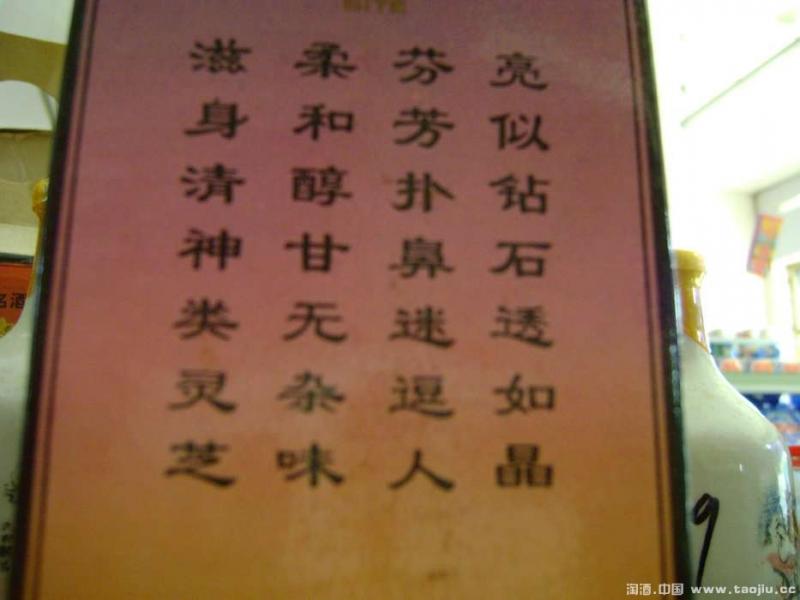 亮似钻石透如晶
芬芳扑鼻迷逗人
柔和醇甘无杂味
滋身清神类灵芝
名酒
9
淘酒.中国 www.taojiu.cc